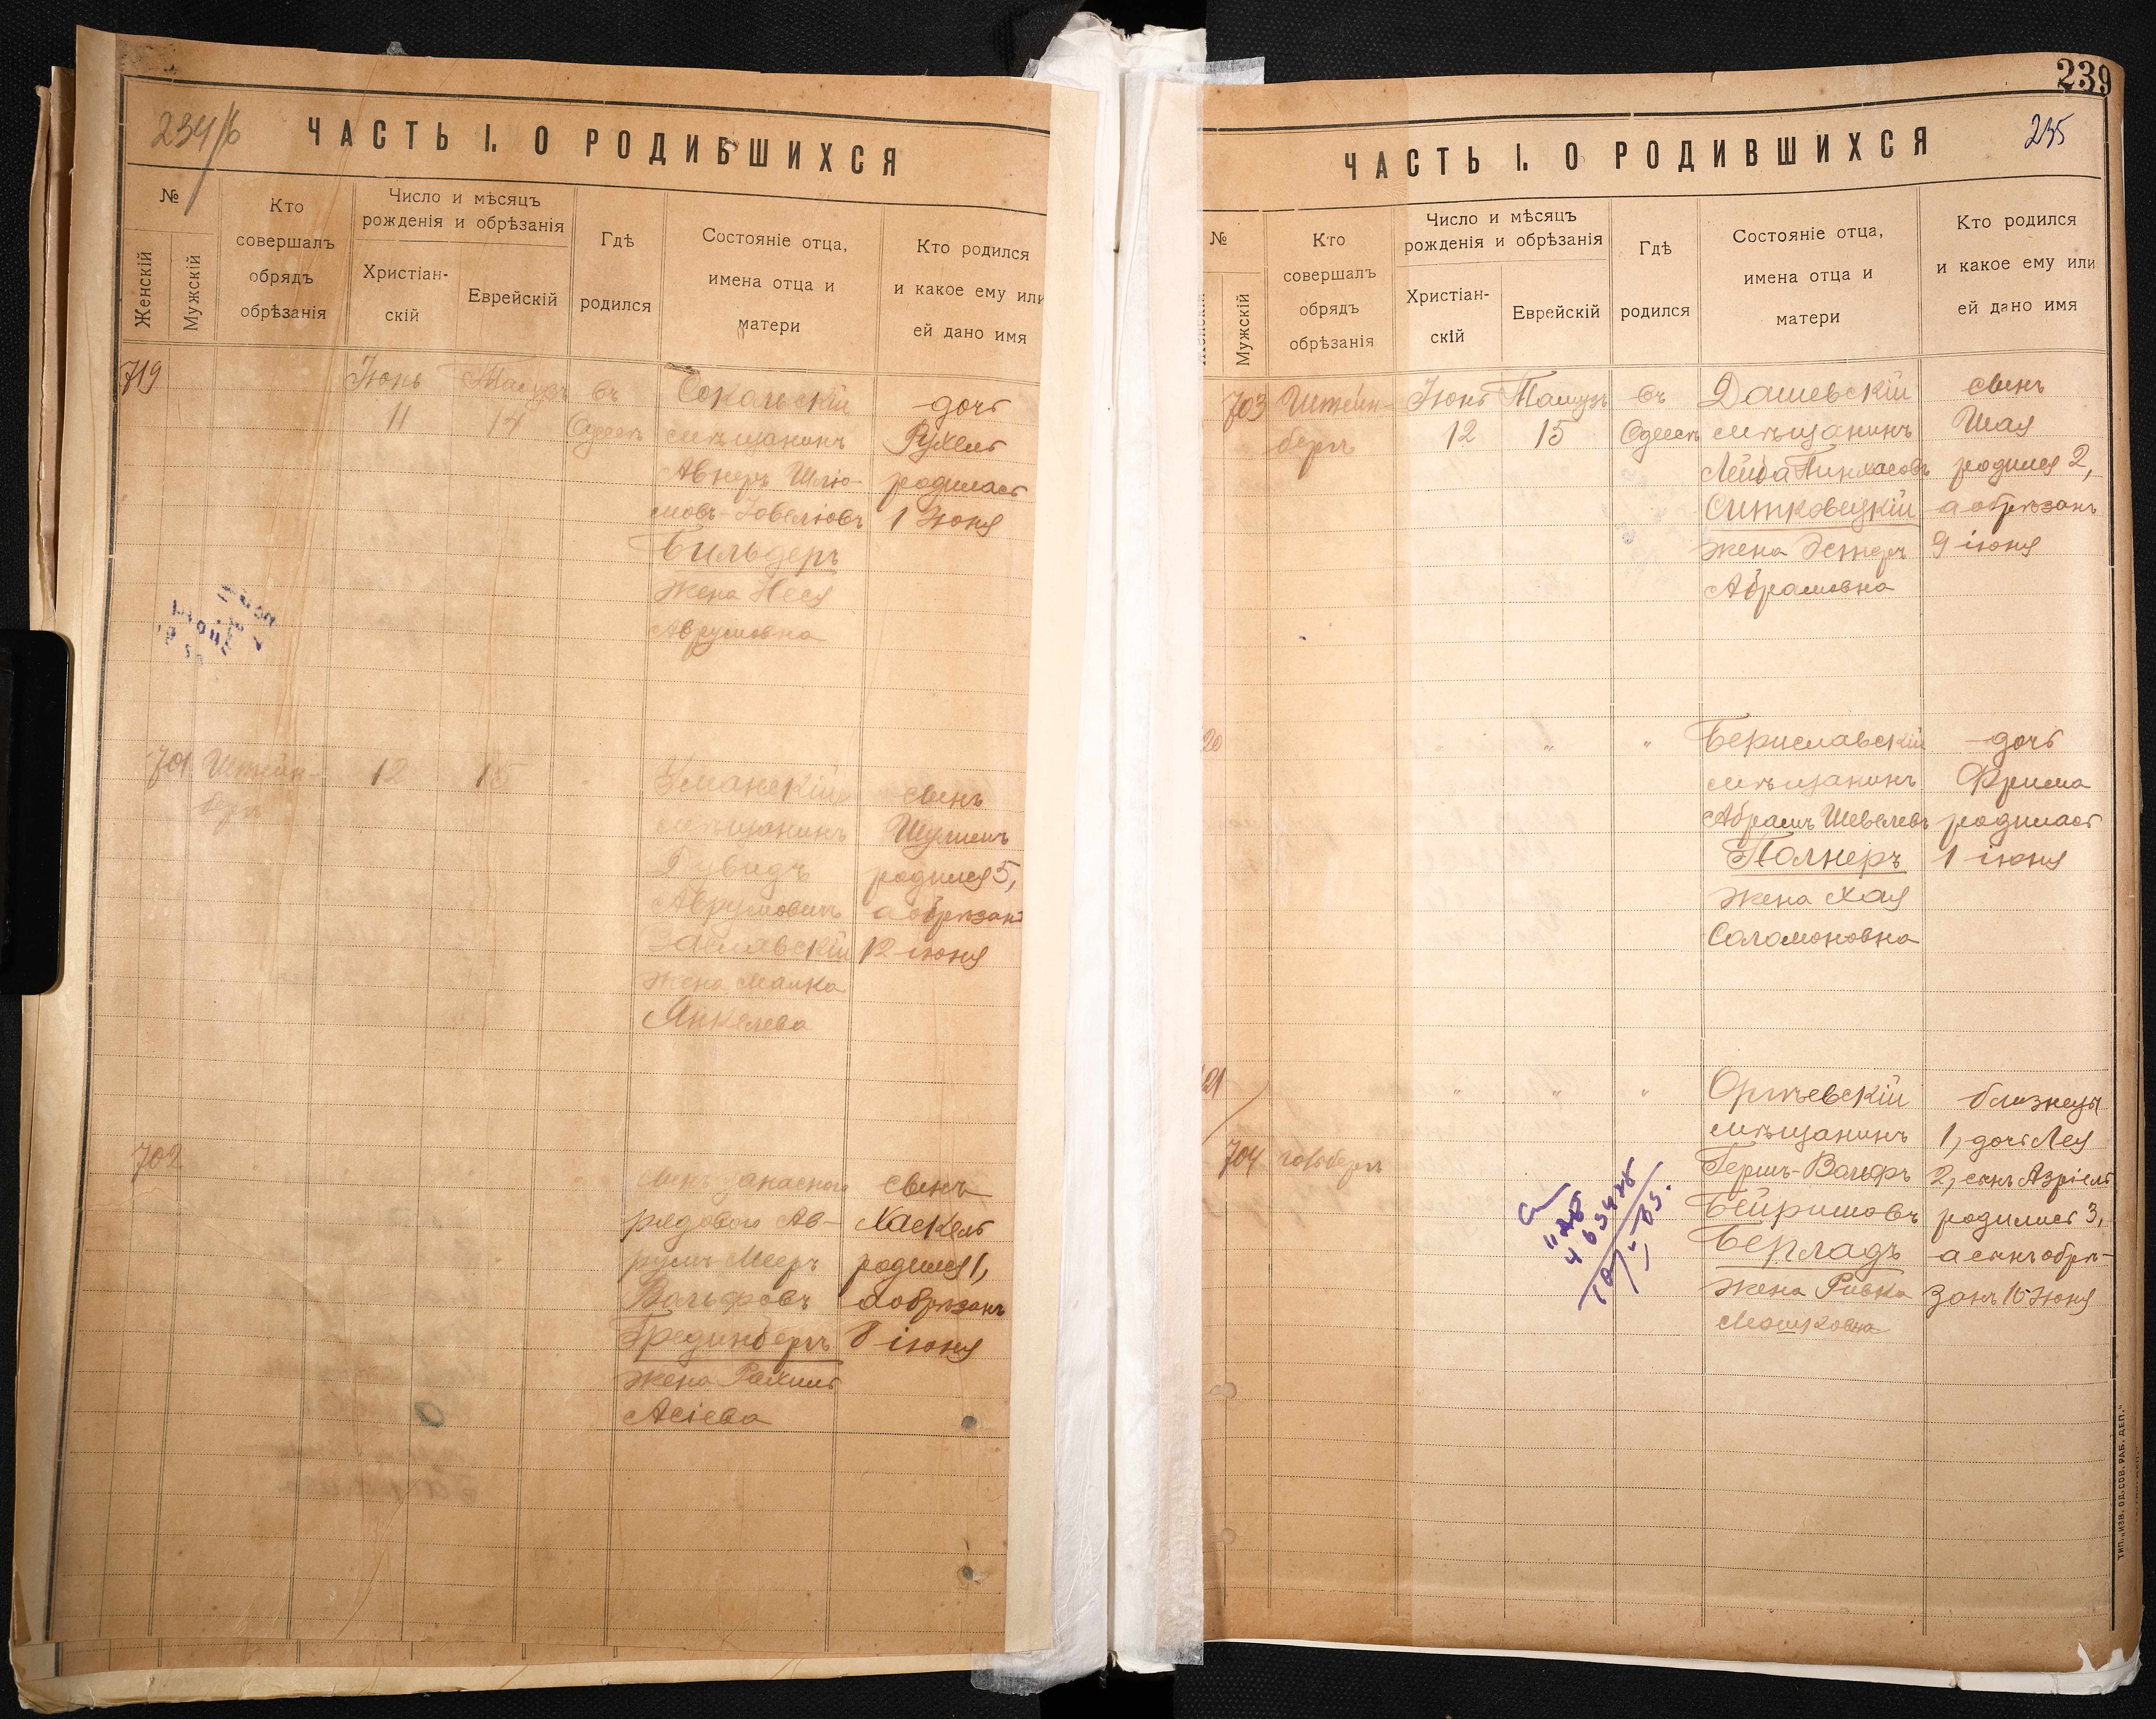 234/б
ЧАСТЬ I. О РОДИВШИХСЯ
№
Женскій
Мужскій
Кто
совершалъ
обрядъ
обрѣзанія
Число и мѣсяцъ
рожденія и обрѣзанія
Христіан-
скій
Еврейскій
Гдѣ
родился
Состояніе отца,
имена отца и
матери
Кто родился
и какое ему или
ей дано имя
719
Іюнь
11
14
въ
Одессѣ
Сокольскій
мѣщанинъ
Авнеръ Шліо-
Бильдеръ
жена Неся
Аврумовна
дочь
Рухель
родилась
1 Іюня
701
Штейн-
бергъ
12
15
Уманскій
мѣщанинъ
Дувидъ
Аврумовичъ
Заславскій
жена Малка
Янкелева
сынъ
Шулимъ
родился 5,
а обрѣзанъ
12 іюня
702
сынъ запаснаго
рядового Ав-
румъ-Мееръ
Вольфовъ
Грединбергъ
жена Рахиль
Асіева
сынъ
Хаскель
родился 1,
а обрѣзанъ
8 іюня
239
235
ЧАСТЬ I. О РОДИВШИХСЯ
№
Женскій
Мужскій
Кто
совершалъ
обрядъ
обрѣзанія
Число и мѣсяцъ
рожденія и обрѣзанія
Христіан-
скій
Еврейскій
Гдѣ
родился
Состояніе отца,
имена отца и
матери
Кто родился
и какое ему или
ей дано имя
703
Штейн-
бергъ
Іюнь
12
Тамузъ
15
въ
Одессѣ
Дашевскій
мѣщанинъ
Лейба Пинхасовъ
Ситковецкій
жена Эстеръ
Абрамовна
сынъ
Шая
родился 2,
а обрѣзанъ
9 іюня
20
" " "
Бериславскій
мѣщанинъ
Абрамъ Шевелевъ
Полнеръ
жена Хая
Соломоновна
дочь
Фрима
родилась
1 іюня
21
704
Гольдбергъ
" " "
Оргѣевскій
мѣщанинъ
Гершъ-Вольфъ
Бейришовъ
Берладъ
жена Ривка
Мошковна
близнецы
1, дочь Лея
2, сынъ Азріель
родились 3,
а сынъ обрѣ-
занъ 10 Іюня
ТИП. „ИЗВ. ОД. СОВ. РАБ. ДЕП.“